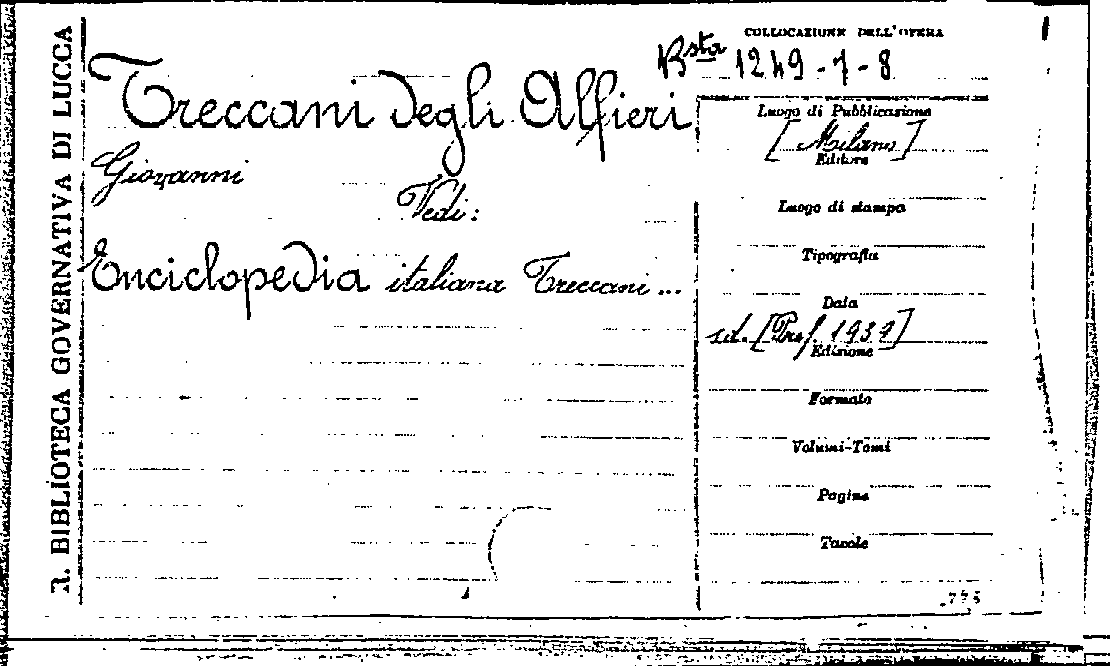 R. BIBLIOTECA GOVERNATIVA DI LUCCA
COLLOCAZIONE DELL'OPERA
Bsta 1249-7-8
Treccani degli Alfieri
Giovanni
Vedi:
Enciclopedia italiana Treccani...
Luogo di Pubblicazione
[Milano]
Editore
Luogo di stampa
Tipografia
Data
s.d. [Pref. 1939]
Edizione
Formato
Volumi-Tomi
Pagine
Tavole